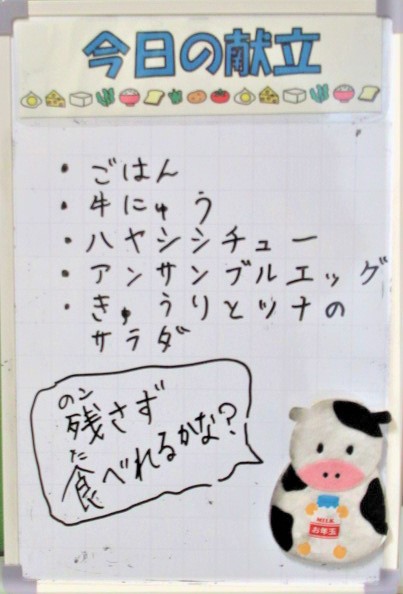 今日の献立
・ごはん
・牛にゅう
・ハヤシシチュー
・アンサンブルエッグ
・きゅうりとツナの
サラダ
のこ
残さず
た
食べれるかな?
MILK
お年玉